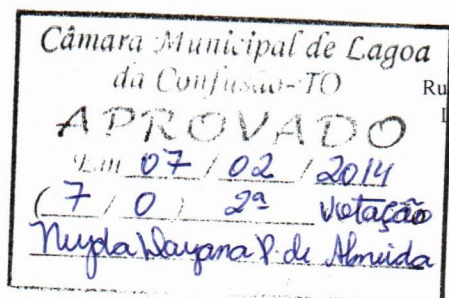 Câmara Municipal de Lagoa
da Confusão-TO
Ru
APROVADO
Em 07 / 02 / 2014
( 7 / 0 ) 2ª Votação
Dayana P. de Almeida